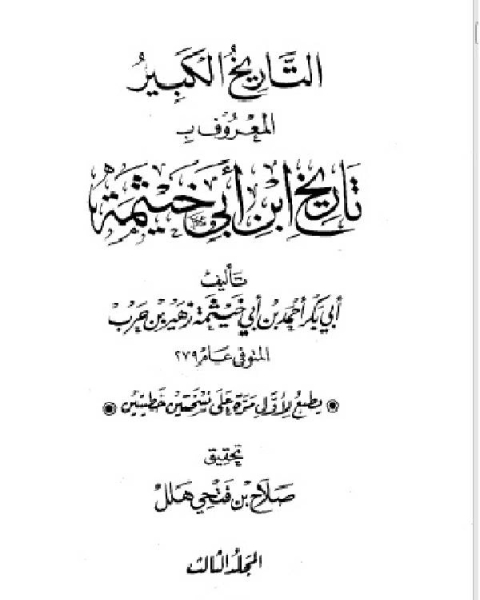 التَّارِيخُ الكَبِيرُ
المَعْرُوف بِ
تَارِيخِ ابْنِ أَبِي خَيْثَمَةَ
تَأليف
أَبِي بَكْر أَحْمَد بْن أَبِي خَيْثَمَة زُهَيْر بْن حَرْب
المتوفى عَام ٢٧٩ هـ
يطبع لأوّل مَرّة عَلى نسْختين خَطيّتين
تحقيق
صَلَاح بن فَتحي هَلل
المجَلّد الثالث